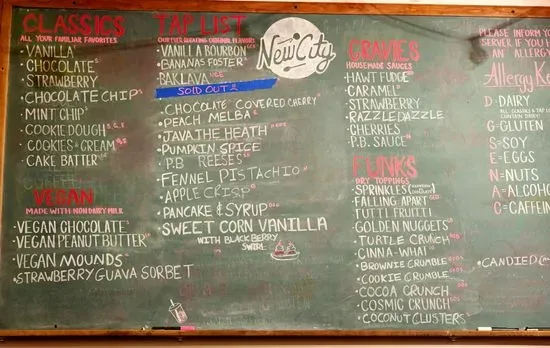 CLASSICS
ALL YOUR FAMILIAR FAVORITES
• VANILLA
• CHOCOLATE
• STRAWBERRY
• CHOCOLATE CHIP
• MINT CHIP
• COOKIE DOUGH
• COOKIES & CREAM
• CAKE BATTER
VEGAN
MADE WITH NON DAIRY MILK
• VEGAN CHOCOLATE
• VEGAN PEANUT BUTTER
• VEGAN MOUNDS
• STRAWBERRY GUAVA SORBET
TAP LIST
OUR EVER ROTATING ORIGINAL FLAVORS
VANILLA BOURBON
• BANANAS FOSTER
BAKLAVA
SOLD OUT
• CHOCOLATE COVERED CHERRY
• PEACH MELBA
• JAVA THE HEATH
• PUMPKIN SPICE
• P.B REESES
• FENNEL PISTACHIO
• APPLE CRISP
• PANCAKE & SYRUP
• SWEET CORN VANILLA
WITH BLACKBERRY
SWIRL
New City
CRAVIES
HOUSEMADE SAUCES
• HAWT FUDGE
• CARAMEL
• STRAWBERRY
• RAZZLE DAZZLE
• CHERRIES
• P.B. SAUCE
FUNKS
DRY TOPPINGS
• SPRINKLES
• FALLING APART
• TUTTI FRUITTI
• GOLDEN NUGGETS
• TURTLE CRUNCH
• CINNA-WHAT
• BROWNIE CRUMBLE
• COOKIE CRUMBLE
• COCOA CRUNCH
• COSMIC CRUNCH
• COCONUT CLUSTERS
PLEASE INFORM
SERVER IF YOU
AN ALLERGY
Allergy
D-DAIRY
G-GLUTEN
S-SOY
E-EGGS
N-NUTS
A-ALCOHO
C-CAFFEIN
• CANDIED